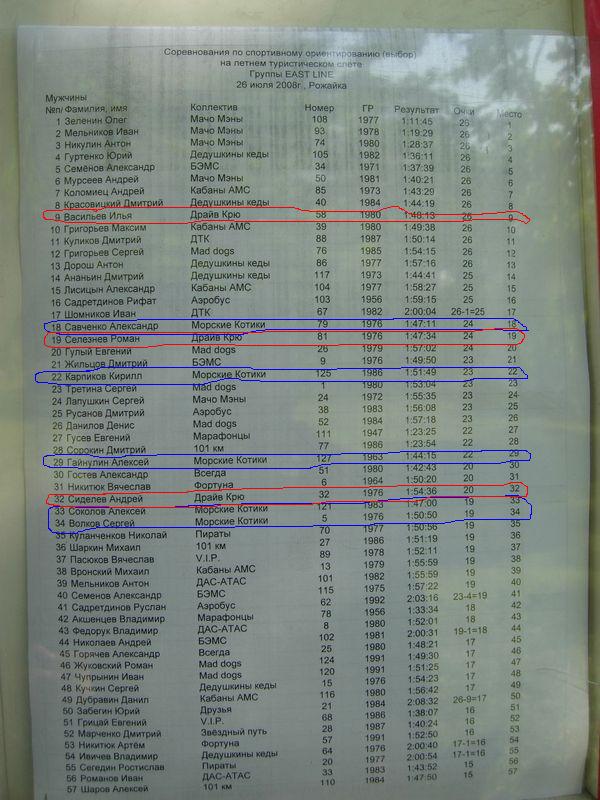 Соревнования по спортивному ориентированию (выбор)
на летнем туристическом слёте
Группы EAST LINE
26 июля 2008г., Рожайка
Мужчины
№п/ Фамилия, имя Коллектив Номер ГР Результат Очки Место
1 Зеленин Олег Мачо Мэны 108 1977 1:11:45 26 1
2 Мельников Иван Мачо Мэны 93 1978 1:19:29 26 2
3 Никулин Антон Мачо Мэны 74 1980 1:28:37 26 3
4 Гуртенко Юрий Дедушкины кеды 105 1982 1:36:11 26 4
5 Семёнов Александр БЭМС 34 1971 1:37:39 26 5
6 Мурсеев Андрей Мачо Мэны 50 1981 1:40:21 26 6
7 Коломиец Андрей Кабаны АМС 85 1973 1:43:29 26 7
8 Красовицкий Дмитрий Дедушкины кеды 40 1984 1:44:19 26 8
9 Васильев Илья Драйв Крю 58 1980 1:48:13 26 9
10 Григорьев Максим Кабаны АМС 39 1980 1:49:38 26 10
11 Куликов Дмитрий ДТК 88 1987 1:50:14 26 11
12 Григорьев Сергей Mad dogs 76 1985 1:54:15 26 12
13 Дорош Антон Дедушкины кеды 86 1977 1:57:16 26 13
14 Ананьин Дмитрий Дедушкины кеды 117 1973 1:44:41 25 14
15 Лисицын Александр Кабаны АМС 104 1977 1:58:27 25 15
16 Садретдинов Рифат Аэробус 103 1956 1:59:15 25 16
17 Шомников Иван ДТК 67 1982 2:00:04 26-1=25 17
18 Савченко Александр Морские Котики 79 1976 1:47:11 24 18
19 Селезнев Роман Драйв Крю 81 1976 1:47:34 24 19
20 Гулый Евгений Mad dogs 26 1979 1:57:02 24 20
21 Жильцов Дмитрий БЭМС 9 1976 1:49:50 23 21
22 Карпиков Кирилл Морские Котики 125 1986 1:51:49 23 22
23 Третина Сергей Mad dogs 1 1980 1:53:04 23 23
24 Лапушкин Сергей Мачо Мэны 24 1972 1:55:35 23 24
25 Русанов Дмитрий Аэробус 38 1983 1:56:08 23 25
26 Данилов Денис Mad dogs 52 1984 1:57:18 23 26
27 Гусев Евгений Марафонцы 111 1947 1:23:25 22 27
28 Сорокин Дмитрий 101 км 77 1986 1:23:54 22 28
29 Гайнулин Алексей Морские Котики 127 1963 1:44:15 22 29
30 Гостев Александр Всегда 51 1980 1:42:43 20 30
31 Никитюк Вячеслав Фортуна 6 1964 1:50:20 20 31
32 Сиделев Андрей Драйв Крю 32 1976 1:54:36 20 32
33 Соколов Алексей Морские Котики 121 1983 1:47:00 19 33
34 Волков Сергей Морские Котики 5 1976 1:50:50 19 34
35 Куланченков Николай Пираты 70 1977 1:50:56 19 35
36 Шаркин Михаил 101 км 27 1986 1:51:19 19 36
37 Пасюков Вячеслав V.I.P. 89 1978 1:52:11 19 37
38 Вронский Михаил Кабаны АМС 13 1979 1:55:59 19 38
39 Мельников Антон ДАС-АТАС 101 1982 1:55:59 19 39
40 Семенов Александр БЭМС 115 1975 1:57:22 19 40
41 Садретдинов Руслан Аэробус 62 1992 2:03:16 23-4=19 41
42 Акшенцев Владимир Марафонцы 78 1956 1:33:34 18 42
43 Федорук Владимир ДАС-АТАС 8 1980 1:52:01 18 43
44 Николаев Андрей БЭМС 102 1981 2:00:31 19-1=18 44
45 Горячев Александр Всегда 25 1980 1:48:21 17 45
46 Жуковский Роман Mad dogs 124 1991 1:49:30 17 46
47 Чупрынин Иван Mad dogs 120 1991 1:51:25 17 47
48 Кучкин Сергей Дедушкины кеды 15 1976 1:54:23 17 48
49 Дубравин Данил Кабаны АМС 116 1980 1:56:42 17 49
50 Забегин Юрий Друзья 21 1984 2:08:32 26-9=17 50
51 Грицай Евгений V.I.P. 68 1986 1:38:07 16 51
52 Марченко Дмитрий Звёздный путь 28 1987 1:40:24 16 52
53 Никитюк Артём Фортуна 57 1991 1:52:50 16 53
54 Ивичев Владимир Дедушкины кеды 64 1976 2:00:40 17-1=16 54
55 Сегедин Ростислав Пираты 20 1977 2:00:54 17-1=16 55
56 Романов Иван ДАС-АТАС 33 1983 1:43:52 15 56
57 Шаров Алексей 101 км 110 1984 1:47:50 15 57